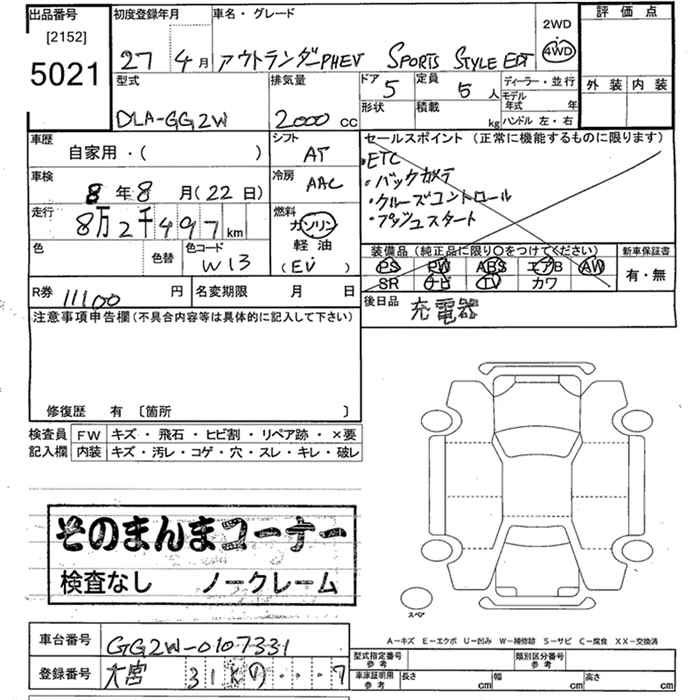 出品番号
[2152]
5021
初度登録年月
27 4月
車名・グレード
アウトランダーPHEV SPORTS STYLE EDT
2WD
4WD
評価点
外装 内装
型式
DLA-GG2W
排気量
2000 cc
ドア
5
定員
5人
形状
積載
kg
ディーラー・並行
モデル年式 年
ハンドル 左・右
車歴
自家用・( )
シフト
AT
セールスポイント (正常に機能するものに限ります)
・ETC
・バックカメラ
・クルーズコントロール
・プッシュスタート
車検
8年8月(22日)
冷房
AAC
走行
8万2千497km
燃料
ガソリン
軽油
(EV)
色
色替
色コード
W13
装備品 (純正品に限り○をつけてください)
PS PW ABS エアB AW
SR ナビ TV カワ
新車保証書
有・無
R券 11100円
名変期限 月 日
後日品
充電器
注意事項申告欄(不具合内容等は具体的に記入して下さい)
修復歴 有〔箇所 〕
検査員記入欄
FW キズ・飛石・ヒビ割・リペア跡・×要
内装 キズ・汚レ・コゲ・穴・スレ・キレ・破レ
そのまんまコーナー
検査なし ノークレーム
スペア
A-キズ E-エクボ U-凹み W-補修跡 S-サビ C-腐食 XX-交換済
車台番号 GG2W-0107331
登録番号 大宮 31 の・・・7
型式指定番号
参考
類別区分番号
参考
車庫証明用
参考
長さ cm 幅 cm 高さ cm